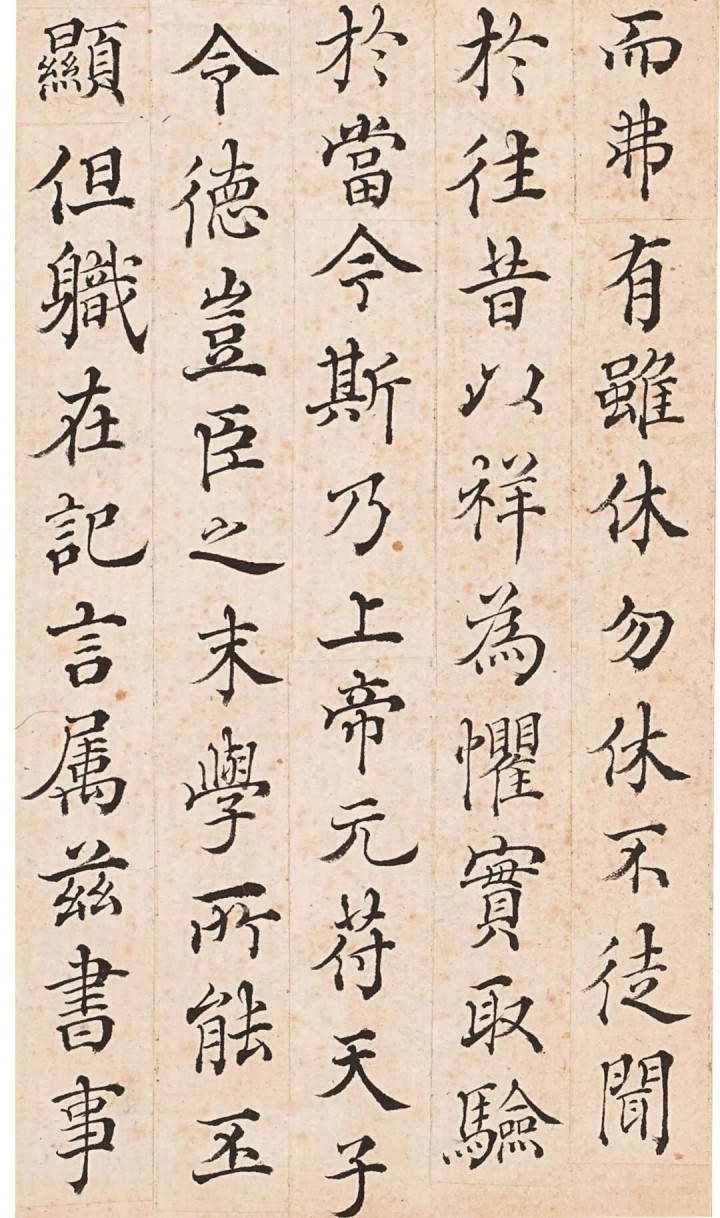 而弗有雖休勿休不徒聞
於往昔以祥為懼實取驗
於當今斯乃上帝元苻天子
令德豈臣之末學所能丕
顯但軄在記言属兹書事